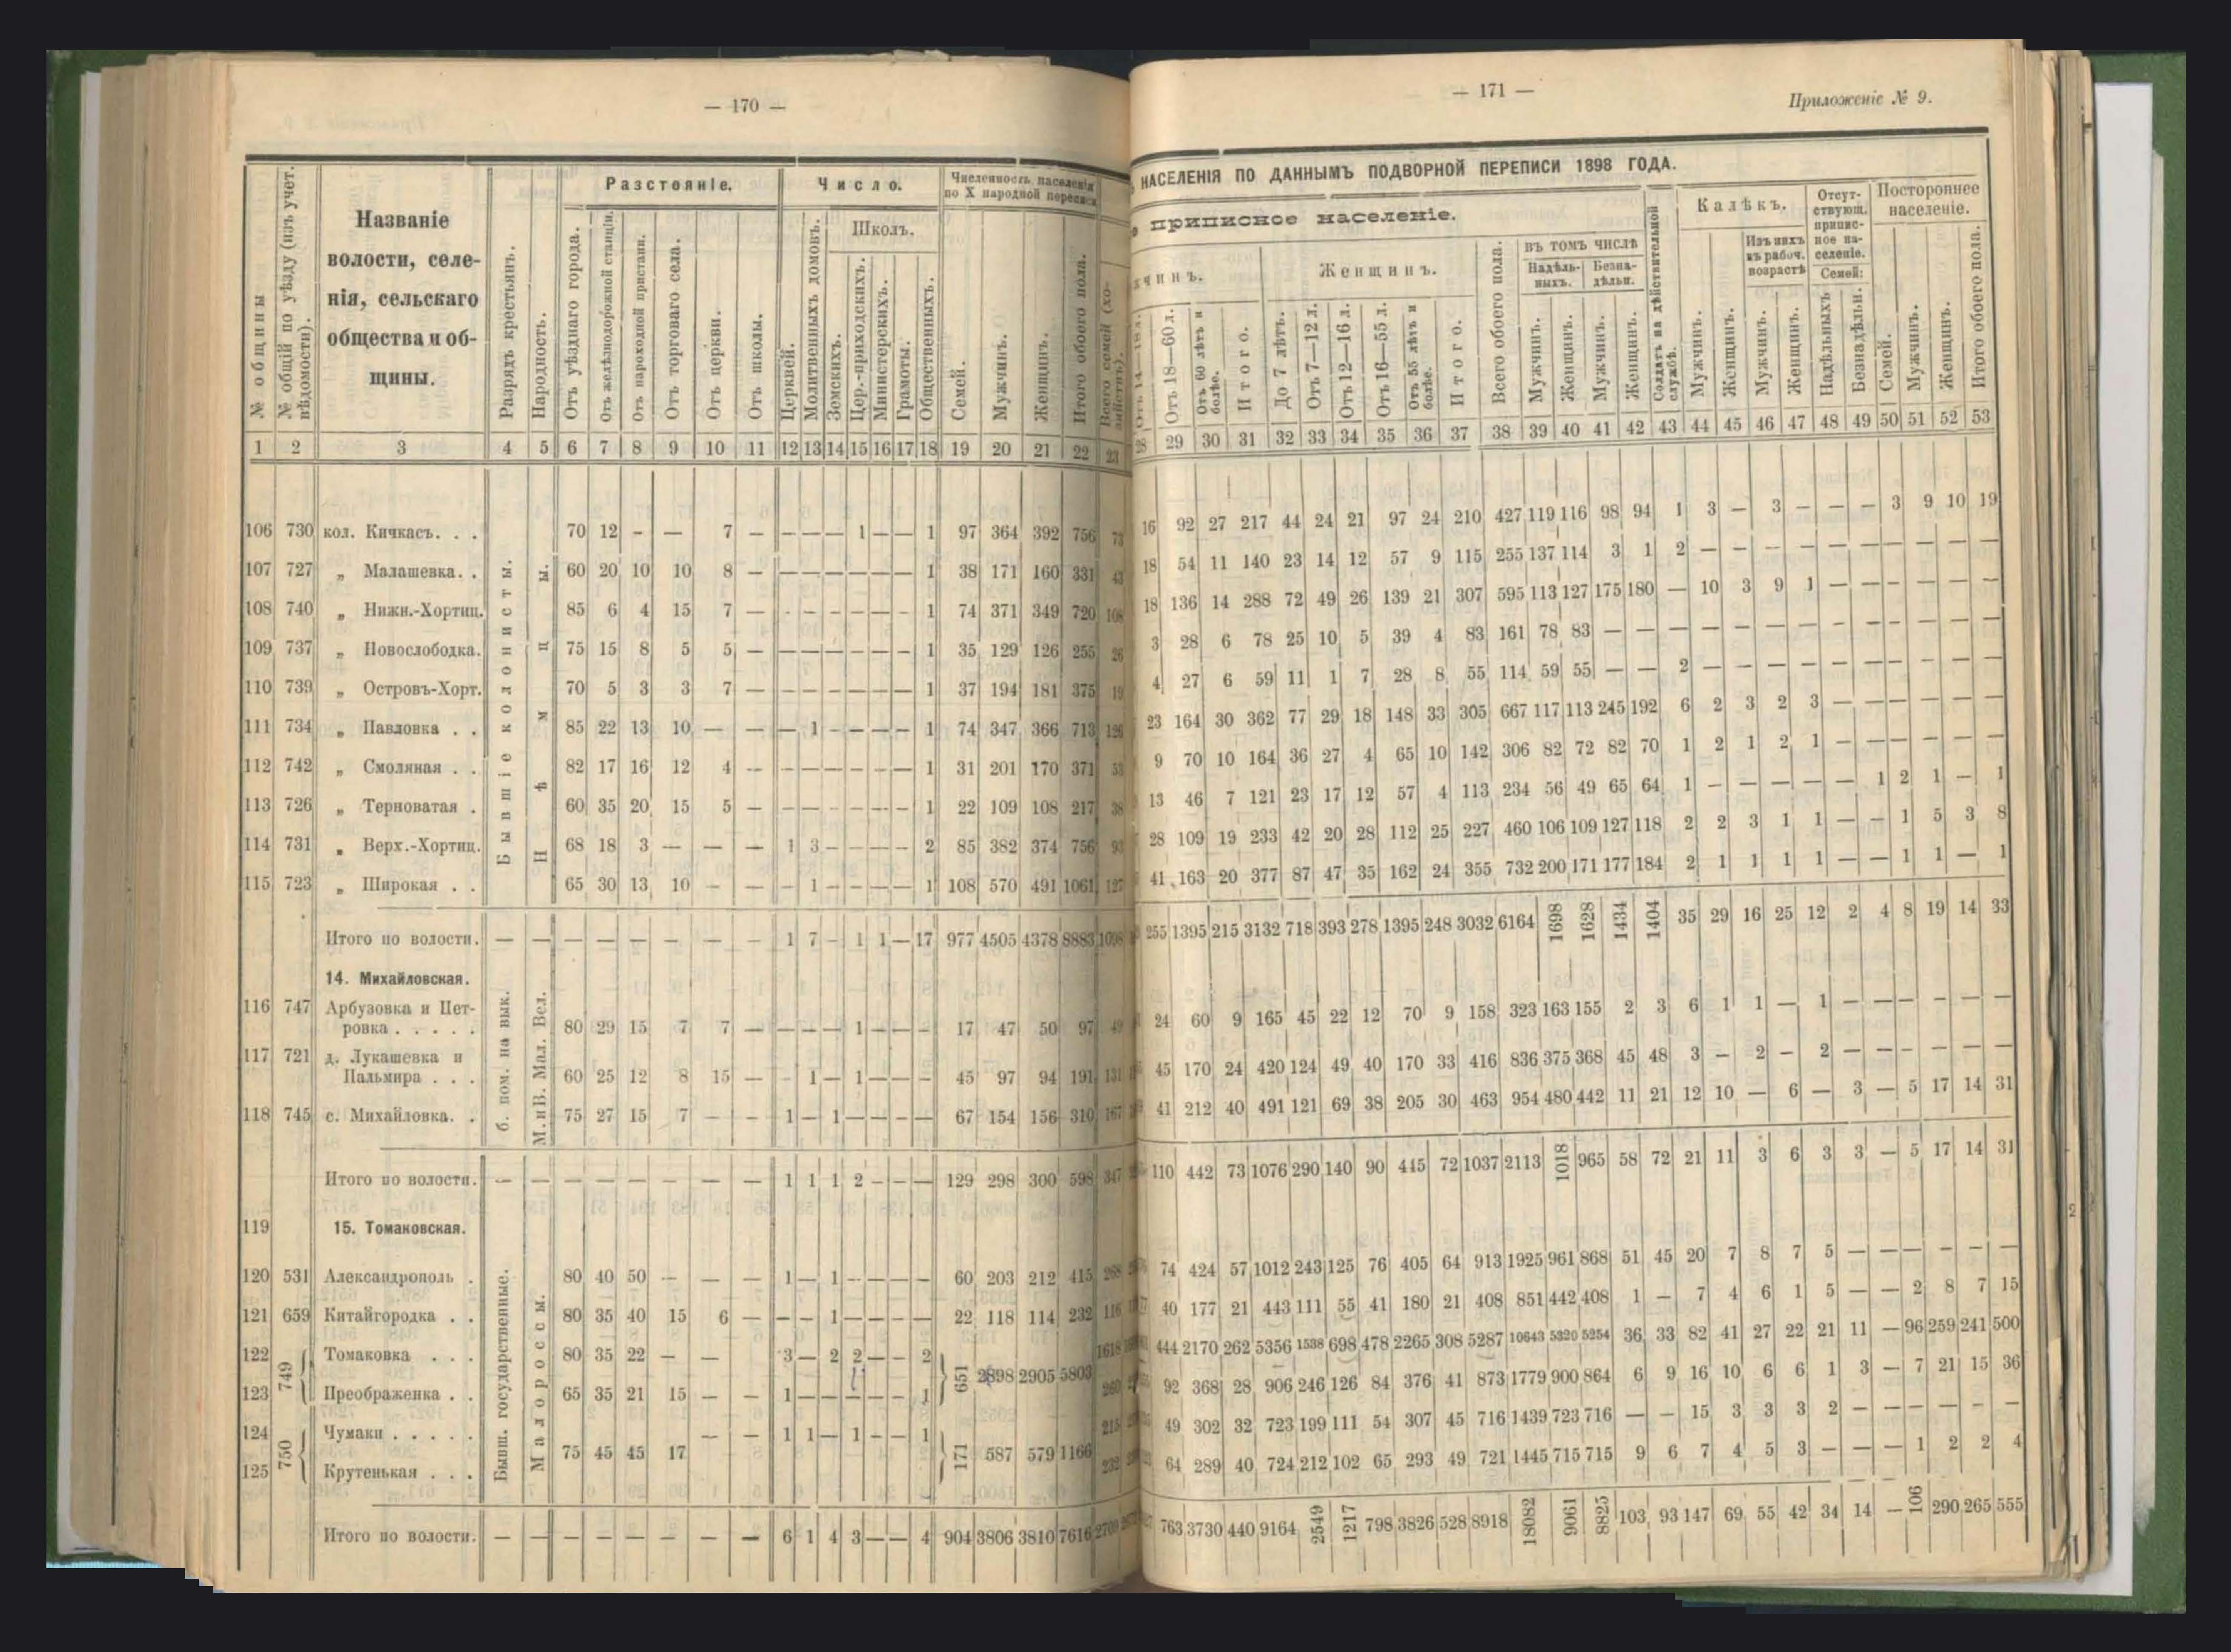 — 170 —
№ общины
№ общій по уѣзду (изъ учет. вѣдомости).
Названіе
волости, селе-
нія, сельскаго
общества и об-
щины.
Разрядъ крестьянъ.
Народность.
Разстояніе.
Отъ уѣзднаго города.
Отъ желѣзнодорожной станціи.
Отъ пароходной пристани.
Отъ торговаго села.
Отъ церкви.
Отъ школы.
Число.
Церквей.
Молитвенныхъ домовъ.
Школъ.
Земскихъ.
Цер.-приходскихъ.
Министерскихъ.
Грамоты.
Общественныхъ.
Численность населенія
по X народной переписи
Семей.
Мужчинъ.
Женщинъ.
Итого обоего пола.
Всего семей (хо-
зяйствъ).
1 2 3 4 5 6 7 8 9 10 11 12 13 14 15 16 17 18 19 20 21 22 23
Бывшіе колонисты.
Нѣмцы.
106 730 кол. Кичкасъ. . . 70 12 - — 7 — — — — 1 — — 1 97 364 392 756 73
107 727 „ Малашевка. . 60 20 10 10 8 — — — — — — — 1 38 171 160 331 43
108 740 „ Нижн.-Хортиц. 85 6 4 15 7 — - - — — — - 1 74 371 349 720 108
109 737 „ Новослободка. 75 15 8 5 5 — — — — — — - 1 35 129 126 255 26
110 739 „ Островъ-Хорт. 70 5 3 3 7 — — — — — — — 1 37 194 181 375 19
111 734 „ Павловка . . 85 22 13 10 — — — 1 — — — — 1 74 347 366 713 126
112 742 „ Смоляная . . 82 17 16 12 4 — — — — — — — 1 31 201 170 371 53
113 726 „ Терноватая . 60 35 20 15 5 — — — — — — — 1 22 109 108 217 38
114 731 „ Верх.-Хортиц. 68 18 3 — — — 1 3 — — — — 2 85 382 374 756 93
115 723 „ Широкая . . 65 30 13 10 — — — 1 — — — — 1 108 570 491 1061 127
Итого по волости. — — — — — — — — 1 7 — 1 1 — 17 977 4505 4378 8883 1098
14. Михайловская.
б. пом. на вык.
М. и В. Мал. Вел.
116 747 Арбузовка и Пет-
ровка . . . . . 80 29 15 7 7 — — — — 1 — — — 17 47 50 97 49
117 721 д. Лукашевка и
Пальмира . . . 60 25 12 8 15 — - 1 — 1 — — — 45 97 94 191 131
118 745 с. Михайловка. . 75 27 15 7 - — 1 — 1 — — — — 67 154 156 310 167
Итого по волости. — — — — — — — — 1 1 1 2 - - — 129 298 300 598 347
119 15. Томаковская.
Бывш. государственные.
Малороссы.
120 531 Александрополь . 80 40 50 — — — 1 — 1 — — — — 60 203 212 415 268
121 659 Китайгородка . . 80 35 40 15 6 — — — 1 — — — — 22 118 114 232 116
122 749 Томаковка . . . 80 35 22 — — 3 — 2 2 — — 2 651 2898 2905 5803 1618
123 Преображенка . . 65 35 21 15 — — 1 — — — — — 1 260
124 750 Чумаки . . . . . 75 45 45 17 — — 1 1 — 1 — — 1 171 587 579 1166 215
125 Крутенькая . . . 232
Итого по волости. — — — — — — — — 6 1 4 3 — — 4 904 3806 3810 7616 2709
— 171 —
Приложеніе № 9.
НАСЕЛЕНІЯ ПО ДАННЫМЪ ПОДВОРНОЙ ПЕРЕПИСИ 1898 ГОДА.
приписное населеніе.
чинъ.
Отъ 14—18 л.
Отъ 18—60 л.
Отъ 60 лѣтъ и
болѣе.
Итого.
Женщинъ.
До 7 лѣтъ.
Отъ 7—12 л.
Отъ 12—16 л.
Отъ 16—55 л.
Отъ 55 лѣтъ и
болѣе.
Итого.
Всего обоего пола.
въ томъ числѣ
Надѣль-
ныхъ.
Безна-
дѣльн.
Мужчинъ.
Женщинъ.
Мужчинъ.
Женщинъ.
Солдатъ на дѣйствительной
службѣ.
Калѣкъ.
Мужчинъ.
Женщинъ.
Изъ нихъ
въ рабоч.
возрастѣ
Мужчинъ.
Женщинъ.
Отсут-
ствующ.
припис-
ное на-
селеніе.
Семей:
Надѣльныхъ
Безнадѣльн.
Постороннее
населеніе.
Семей.
Мужчинъ.
Женщинъ.
Итого обоего пола.
28 29 30 31 32 33 34 35 36 37 38 39 40 41 42 43 44 45 46 47 48 49 50 51 52 53
16 92 27 217 44 24 21 97 24 210 427 119 116 98 94 1 3 — 3 — — — 3 9 10 19
18 54 11 140 23 14 12 57 9 115 255 137 114 3 1 2 — — — — — — — — — —
18 136 14 288 72 49 26 139 21 307 595 113 127 175 180 — 10 3 9 1 — — — — — —
3 28 6 78 25 10 5 39 4 83 161 78 83 — — — — — — — — — — — — —
4 27 6 59 11 1 7 28 8 55 114 59 55 — — 2 — — — — — — — — — —
23 164 30 362 77 29 18 148 33 305 667 117 113 245 192 6 2 3 2 3 — — — — — —
9 70 10 164 36 27 4 65 10 142 306 82 72 82 70 1 2 1 2 1 — — — — — —
13 46 7 121 23 17 12 57 4 113 234 56 49 65 64 1 — — — — — 1 2 1 — 1
28 109 19 233 42 20 28 112 25 227 460 106 109 127 118 2 2 3 1 1 — — 1 5 3 8
41 163 20 377 87 47 35 162 24 355 732 200 171 177 184 2 1 1 1 1 — — 1 1 — 1
255 1395 215 3132 718 393 278 1395 248 3032 6164 1698 1628 1434 1404 35 29 16 25 12 2 4 8 19 14 33
24 60 9 165 45 22 12 70 9 158 323 163 155 2 3 6 1 1 — 1 — — — — — —
45 170 24 420 124 49 40 170 33 416 836 375 368 45 48 3 — 2 — 2 — — — — — —
41 212 40 491 121 69 38 205 30 463 954 480 442 11 21 12 10 — 6 — 3 — 5 17 14 31
110 442 73 1076 290 140 90 445 72 1037 2113 1018 965 58 72 21 11 3 6 3 3 — 5 17 14 31
74 424 57 1012 243 125 76 405 64 913 1925 961 868 51 45 20 7 8 7 5 — — — — — —
40 177 21 443 111 55 41 180 21 408 851 442 408 1 — 7 4 6 1 5 — — 2 8 7 15
444 2170 262 5356 1538 698 478 2265 308 5287 10643 5320 5254 36 33 82 41 27 22 21 11 — 96 259 241 500
92 368 28 906 246 126 84 376 41 873 1779 900 864 6 9 16 10 6 6 1 3 — 7 21 15 36
49 302 32 723 199 111 54 307 45 716 1439 723 716 — — 15 3 3 3 2 — — — — — —
64 289 40 724 212 102 65 293 49 721 1445 715 715 9 6 7 4 5 3 — — — 1 2 2 4
763 3730 440 9164 2549 1217 798 3826 528 8918 18082 9061 8825 103 93 147 69 55 42 34 14 — 106 290 265 555